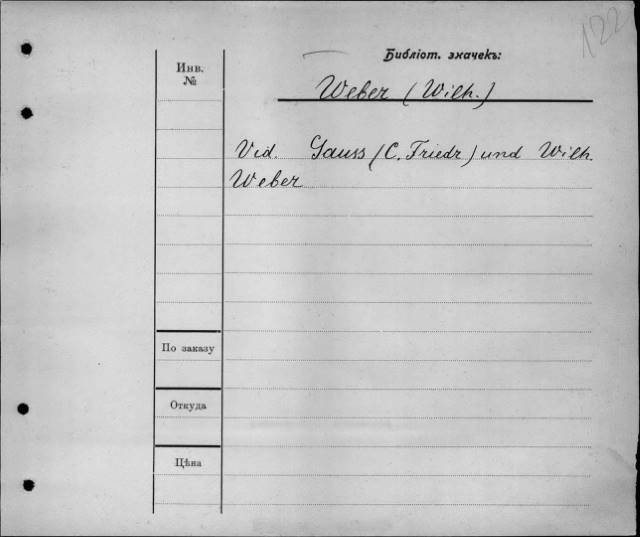 122
Библіот. значекъ:
Инв.
№
Weber (Wilh.)
Vid. Gauss (C. Friedr) und Wilh.
Weber
По заказу
Откуда
Цѣна